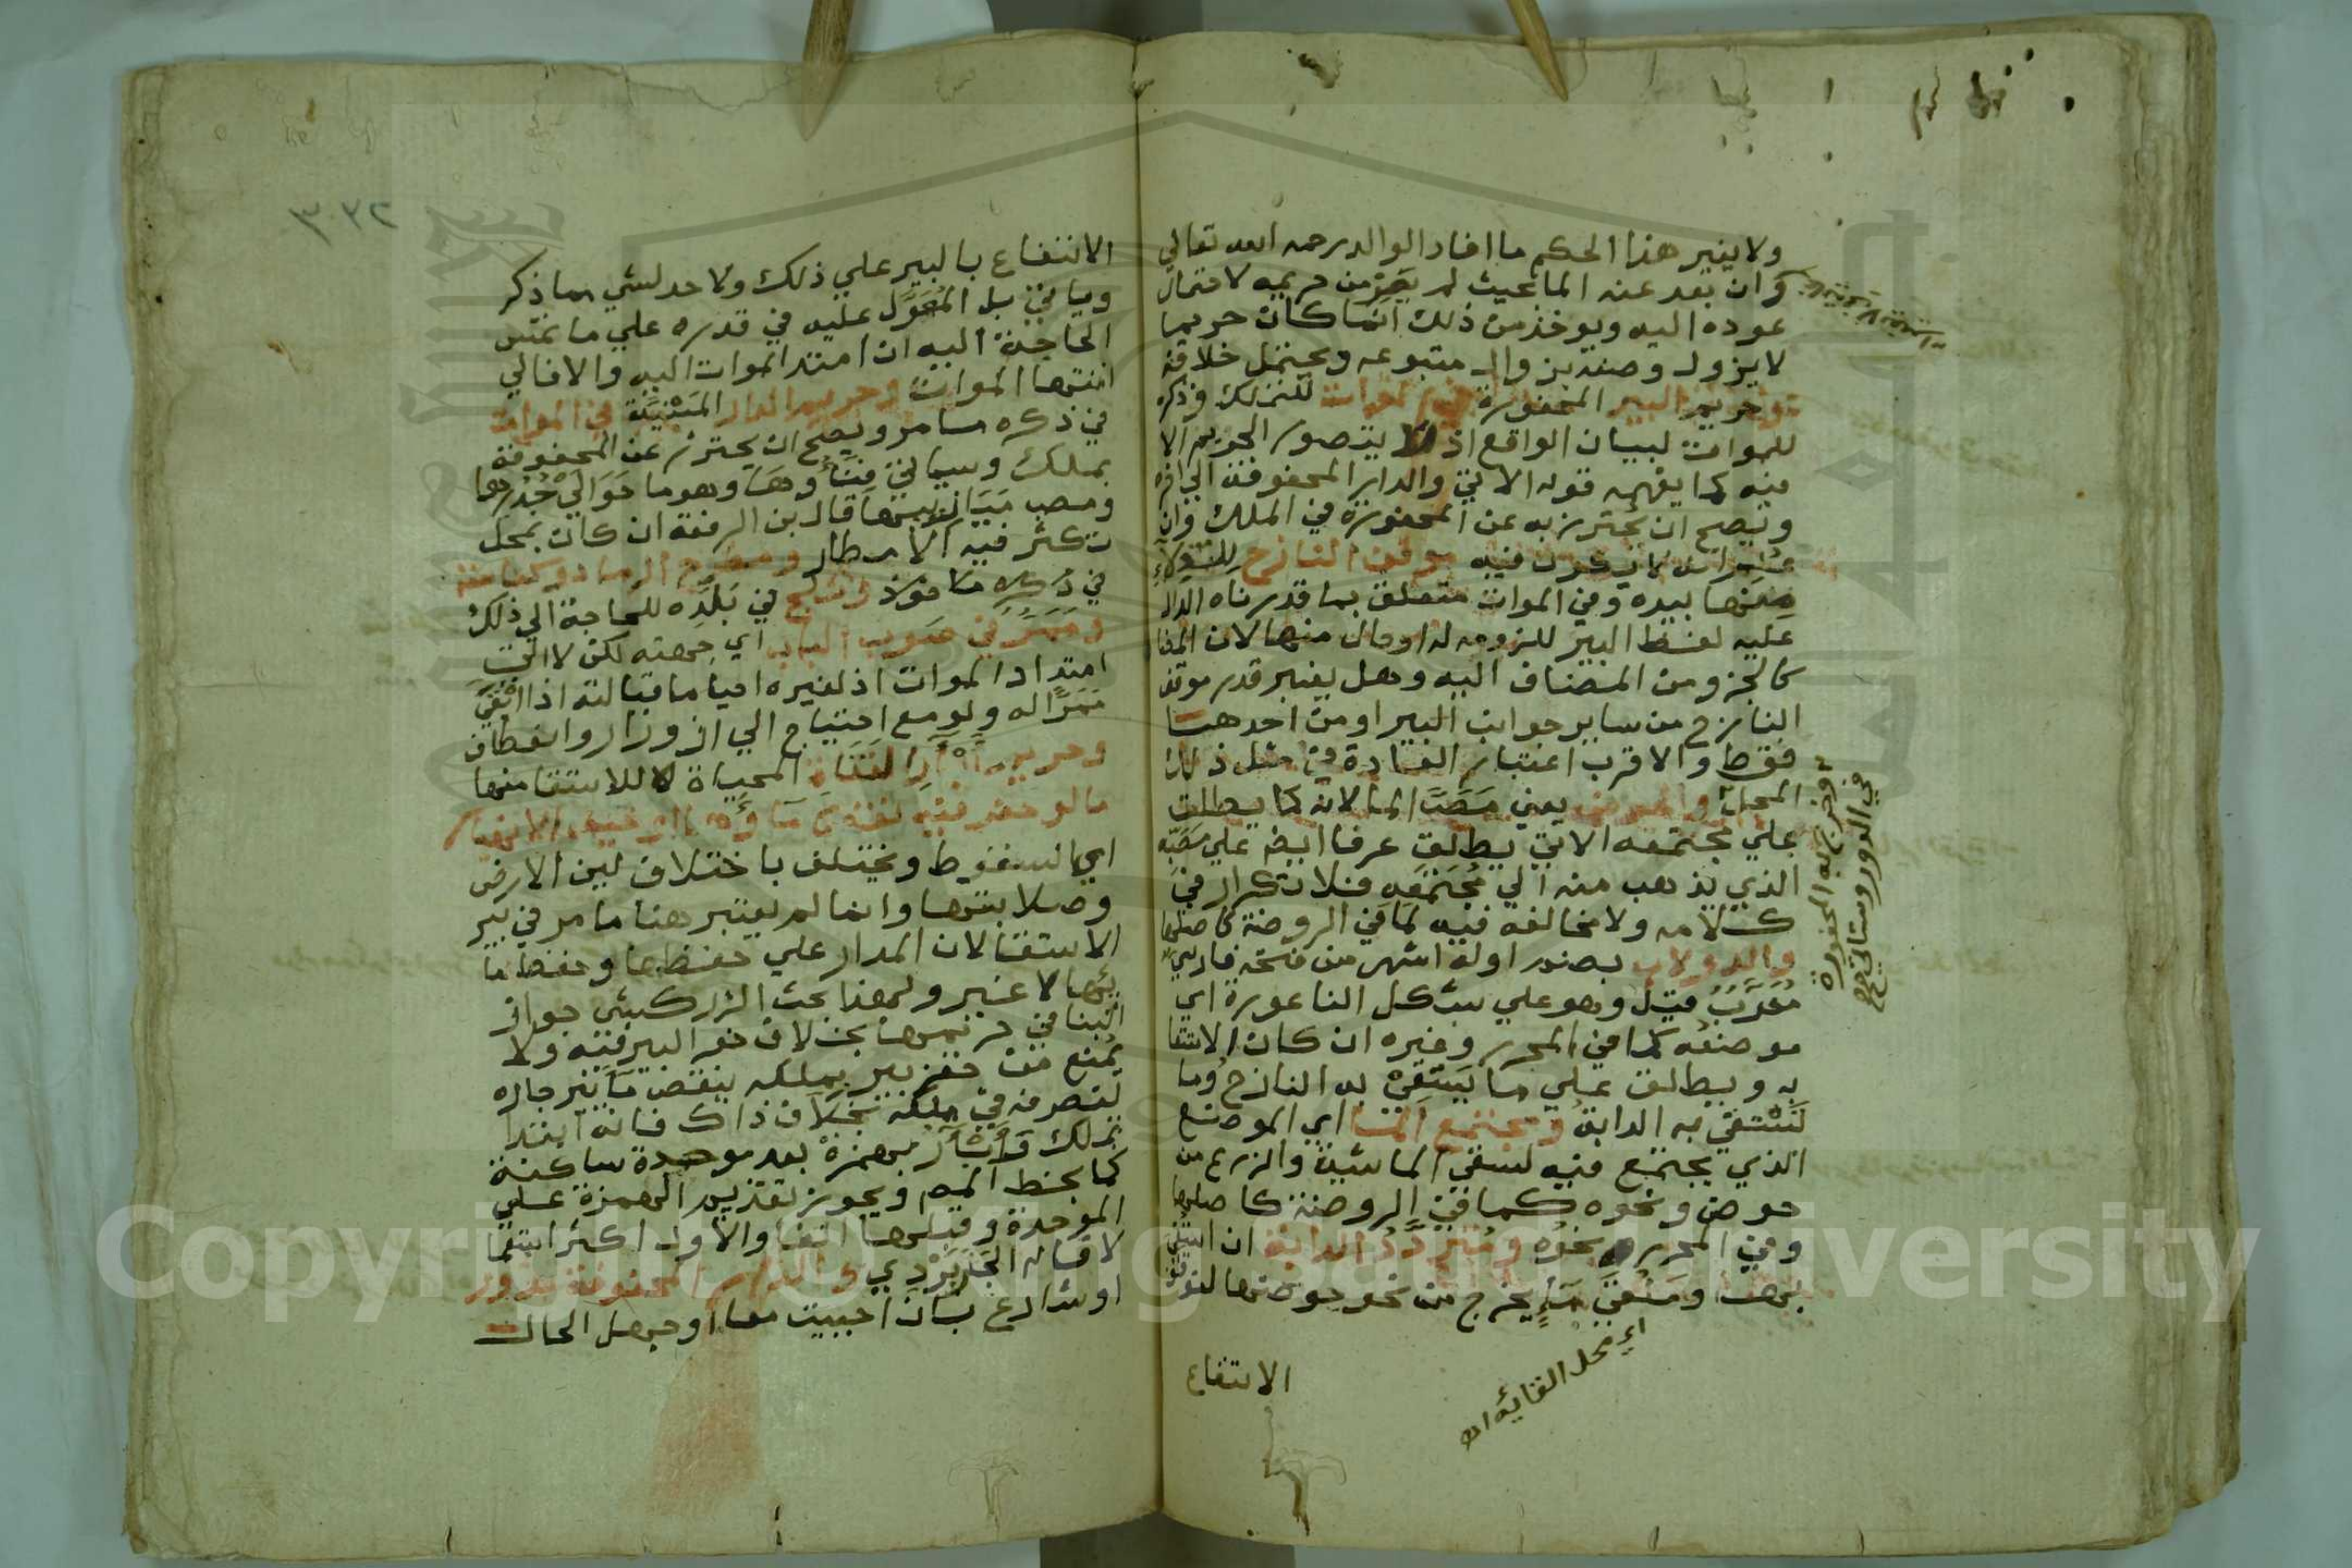 ولا يغير هذا الحكم ما افاد الوالد رحمه الله تعالي
وان بعد عنه الما بحيث لم يصر من حريمه لاحتمال
عوده اليه ويوخذ من ذلك ان ما كان حريما
لا يزول وصفه بزوال متبوعه ويحتمل خلافه
وحريم البير المحفورة في الموات للتملك وذكره
للموات لبيان الواقع اذ لا يتصور الحريم الا
فيه كما يفهمه قوله الاتي والدار المحفوفة الي اخره
ويصح ان يحترز به عن المحفورة في الملك وان
موقف النازح للدلاء
منها بيده وفي الموات متعلق بما قدرناه الدال
عليه لفظ البير للزومه له او حال منها لان المضا
كالجزو من المضاف اليه وهل يعتبر قدر موقف
النازح من ساير جوانب البير او من احدها
فقط والاقرب اعتبار العادة في مثل ذلك
المحل والحوض يعني مصب الما لانه كما يطلق
علي مجتمعه الاتي يطلق عرفا ايضا علي مصبه
الذي يذهب منه الي مجتمعه فلا تكرار في
كلامه ولا مخالفه فيه لما في الروضة كاصلها
والدولاب بضم اوله اشهر من فتحه فارسي
معرب قيل وهو علي شكل الناعورة اي
موضعه كما في المحرر وغيره ان كان الاستقا
به ويطلق علي ما يستقي به النازح وما
تستقي به الدابة ومجتمع الما اي الموضع
الذي يجتمع فيه لسقي الماشية والزرع من
حوض ونحوه كما في الروضة كاصلها
وفي المحرر نحوه ومتردد الدابة ان استقي
بها وملقي ما يخرج من نحو حوضها لتوقف
الانتفاع
اي محل القائه اهـ
وخرج به المحفورة
في الدور وسياتي
٣٣٢
الانتفاع بالبير علي ذلك ولا حد لشي مما ذكر
وياتي بل المعول عليه في قدره علي ما تمس
الحاجة اليه ان امتد الموات اليه والا فالي
انتها الموات وحريم الدار المبنية في الموات
في ذكره ما مر ويصح ان يحترز عن المحفوفة
بملك وسياتي فناؤها وهو ما حوالي جدرها
ومصب ميازيبها قال بن الرفعة ان كان بمحل
تكثر فيه الامطار ومطرح الرماد وكناسة
وثلج في بلده للحاجة الي ذلك
وممر في صوب الباب اي جهته لكن لا الي
امتداد الموات اذ لغيره احيا ما قبالته اذا ابقي
ممرا له ولو مع احتياج الي ازورار وانعطاف
وحريم ابار القناة المحياة لا للاستقا منها
ما لو حفر فيه نقص ماؤها او خيف الانهيار
اي السقوط ويختلف باختلاف لين الارض
وصلابتها وانما لم يعتبر هنا ما مر في بير
الاستقا لان المدار علي حفظها وحفظ ما
ئها لا غير ولهذا بحث الزركشي جواز
البنا في حريمها بخلاف حفر البير فيه ولا
يمنع من حفر بير بملكه ينقص ما بير جاره
لتصرفه في ملكه بخلاف ذاك فانه ابتدا
تملك وابآر بهمزة بعد موحدة ساكنة
كما بخط المص ويجوز تقديم الهمزة علي
الموحدة وقلبها الفا والاول اكثر استعما
لا قاله الجاربردي والدار المحفوفة بدور
او شارع بان احييت معا او جهل الحال